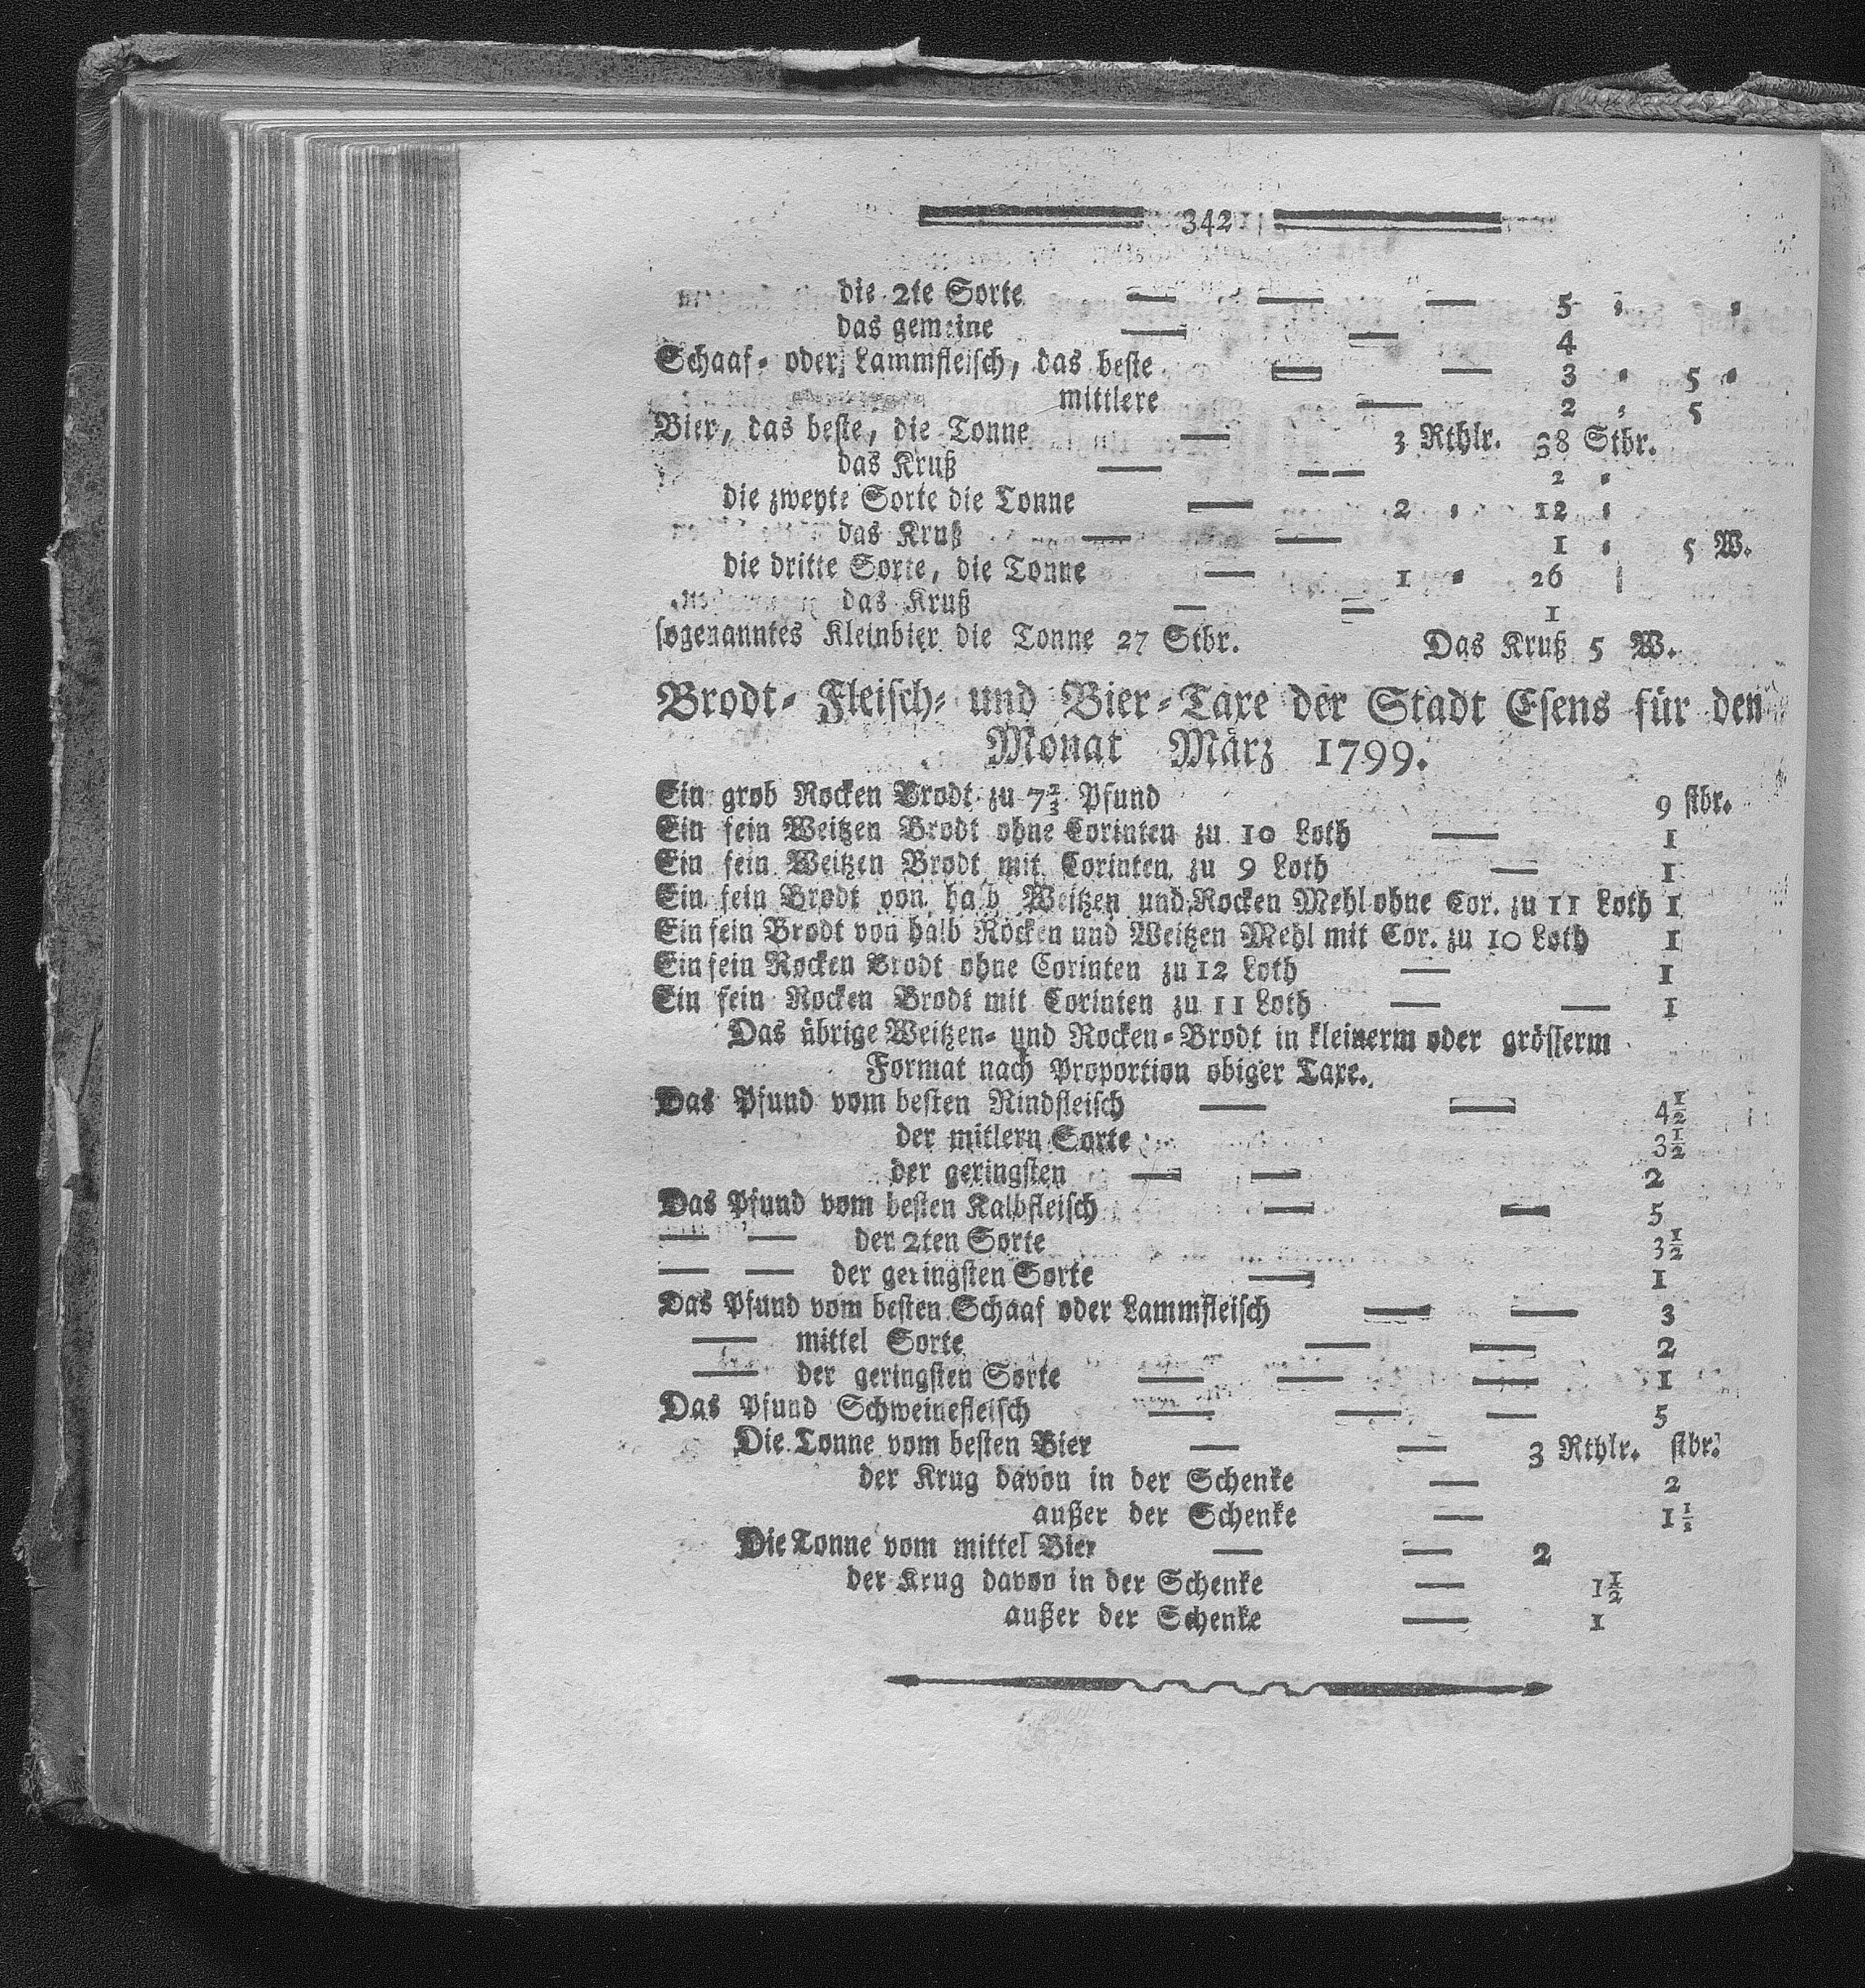 342
die 2te Sorte — — — 5 " "
das gemeine — — 4
Schaaf- oder Lammfleisch, das beste — — 3 " 5 "
mittlere — 2 " 5
Bier, das beste, die Tonne — 3 Rthlr. 38 Stbr.
das Kruß — — — 2 "
die zweyte Sorte die Tonne — 2 " 12 "
das Kruß — — 1 " 5 W.
die dritte Sorte, die Tonne — 1 " 26
das Kruß — — 1
sogenanntes Kleinbier die Tonne 27 Stbr. Das Kruß 5 W.
Brodt- Fleisch- und Bier-Taxe der Stadt Esens für den
Monat März 1799.
Ein grob Rocken Brodt zu 7 Pfund 9 stbr.
Ein fein Weitzen Brodt ohne Corinten zu 10 Loth — 1
Ein fein Weitzen Brodt mit Corinten zu 9 Loth — 1
Ein fein Brodt von halb Weitzen und Rocken Mehl ohne Cor. zu 11 Loth 1
Ein fein Brodt von halb Rocken und Weitzen Mehl mit Cor. zu 10 Loth 1
Ein fein Rocken Brodt ohne Corinten zu 12 Loth — 1
Ein fein Rocken Brodt mit Corinten zu 11 Loth — — 1
Das übrige Weitzen- und Rocken-Brodt in kleinerm oder grösserm
Format nach Proportion obiger Taxe.
Das Pfund vom besten Rindfleisch — — 4½
der mitlern Sorte 3½
der geringsten — — 2
Das Pfund vom besten Kalbfleisch — — 5
— — der 2ten Sorte 3½
— — der geringsten Sorte — 1
Das Pfund vom besten Schaaf oder Lammfleisch — — 3
— mittel Sorte — — 2
— der geringsten Sorte — — — 1
Das Pfund Schweinefleisch — — — 5
Die Tonne vom besten Bier — — 3 Rthlr. stbr.
der Krug davon in der Schenke — 2
außer der Schenke — 1½
Die Tonne vom mittel Bier — — 2
der Krug davon in der Schenke — 1½
außer der Schenke — 1